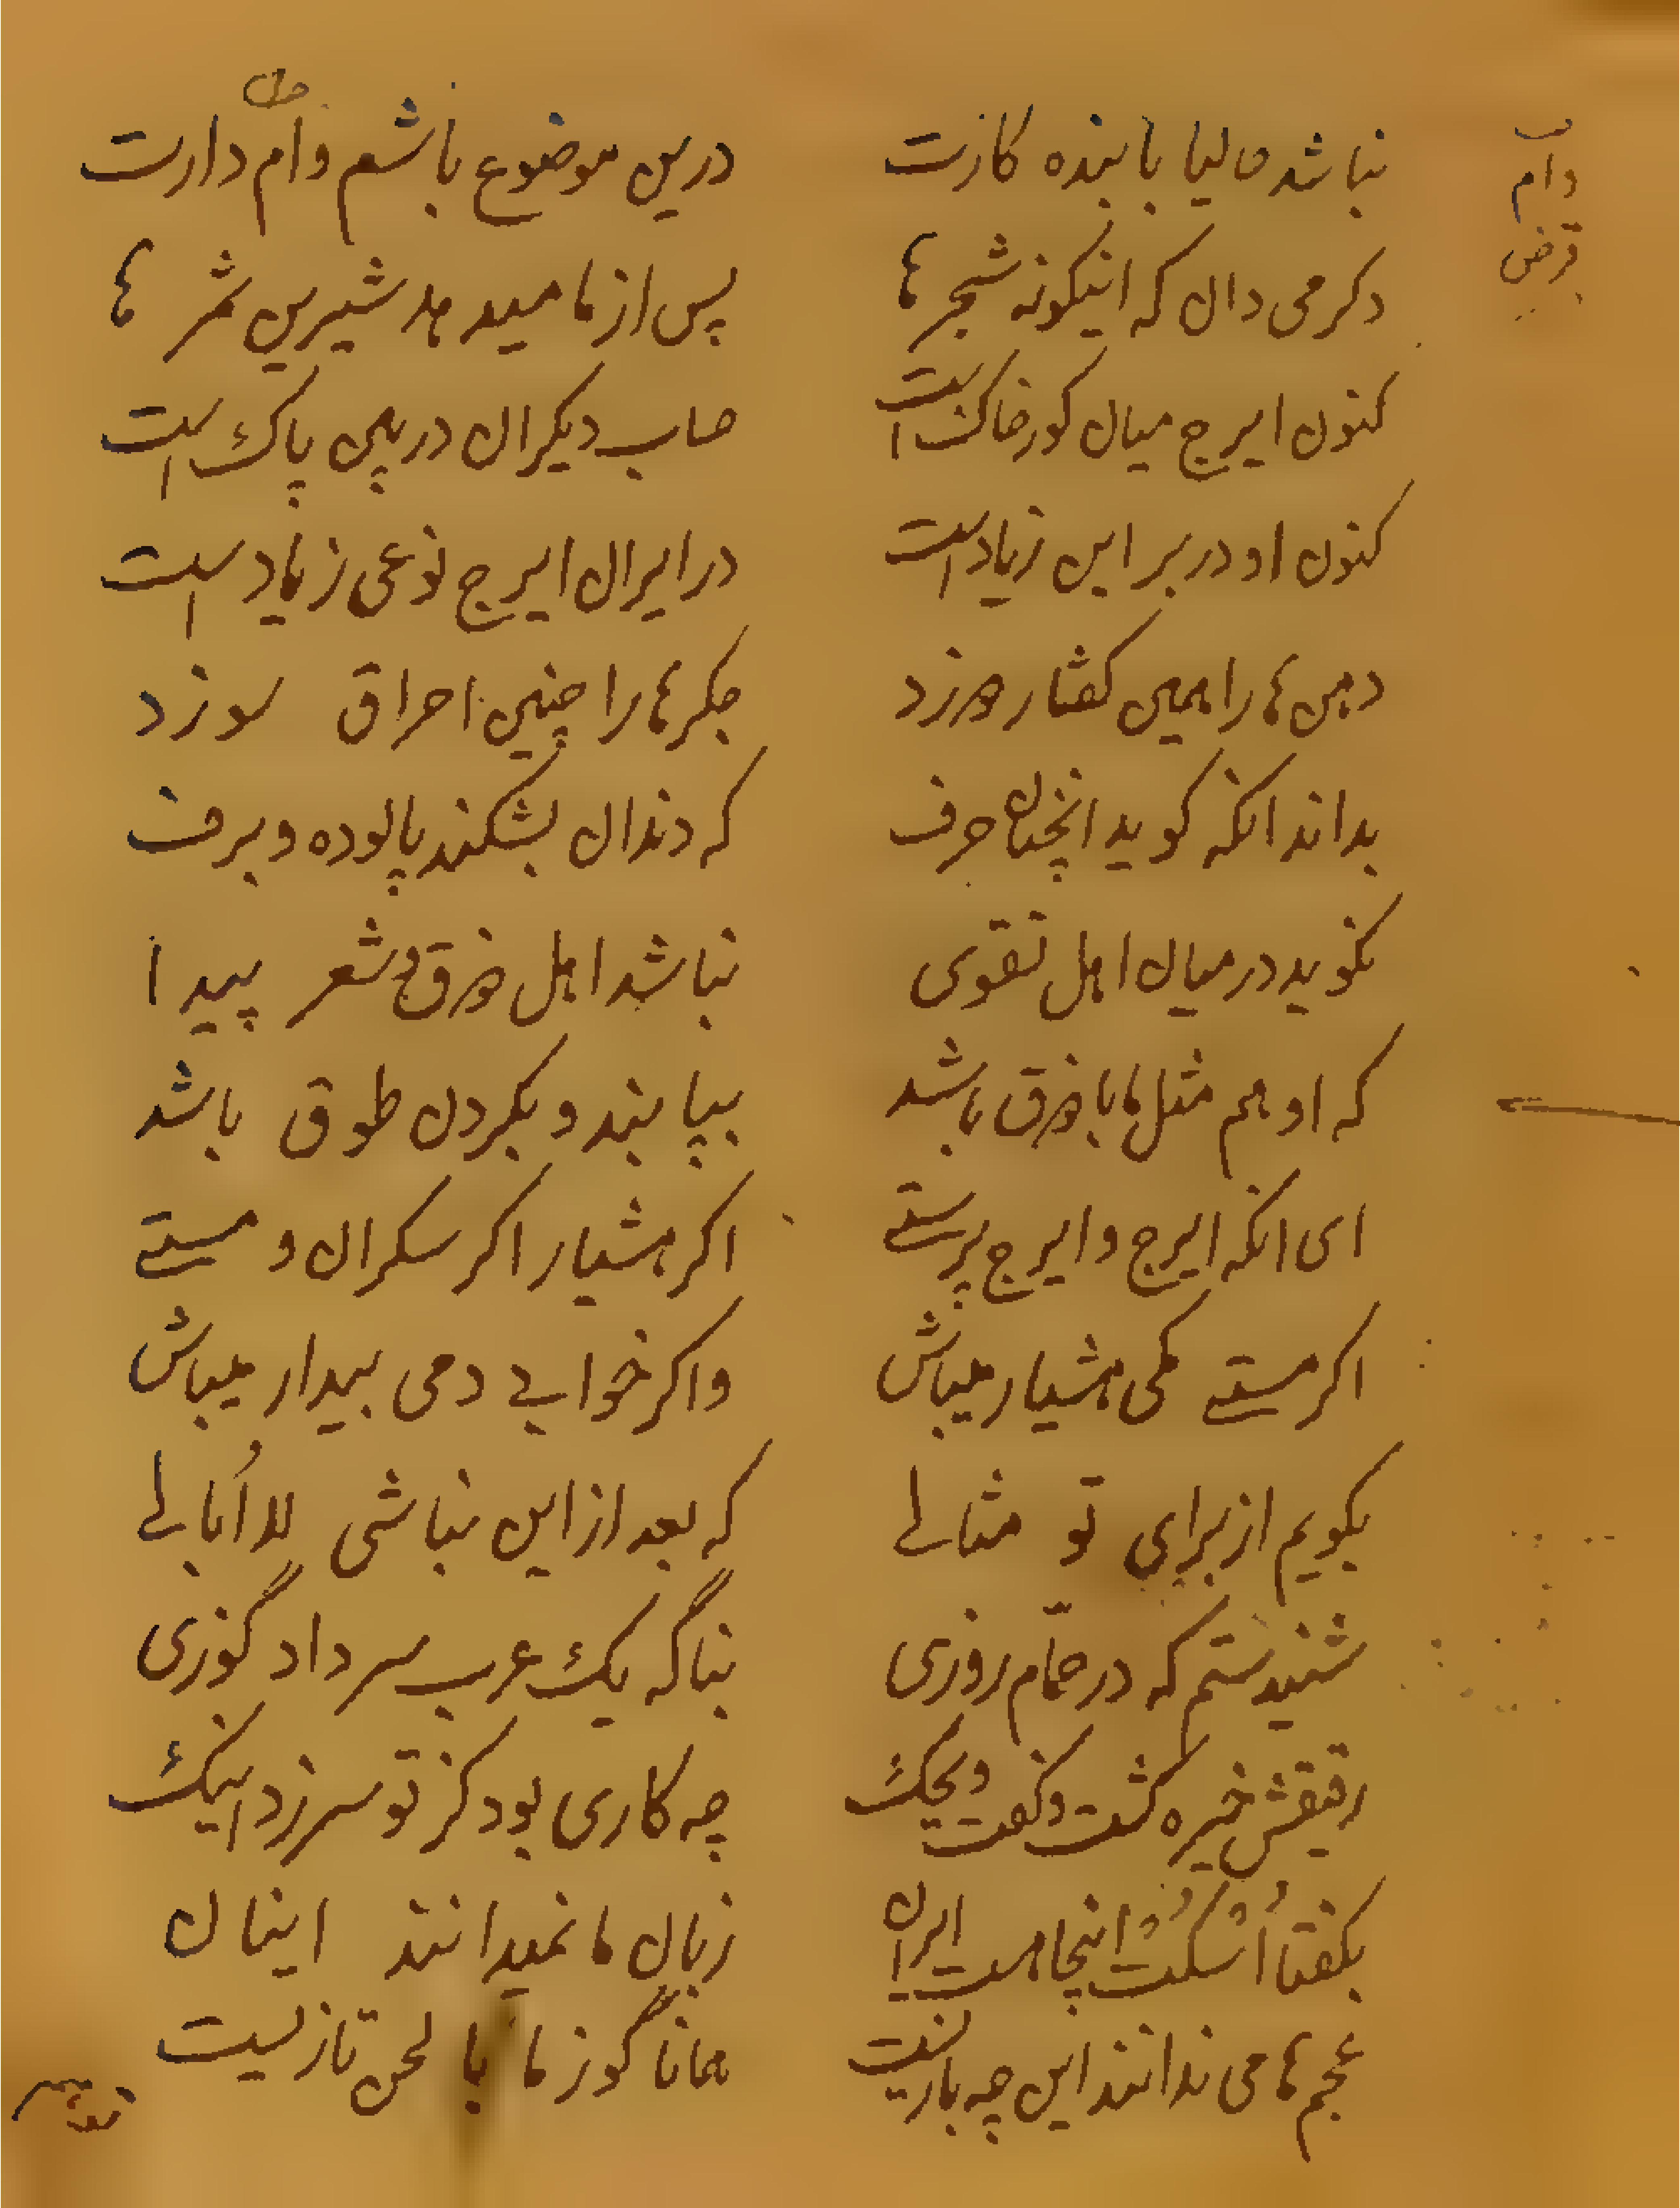 وام
قرض
نباشد مالیا با بنده کارت    درین موضوع باشم وام دارت
دکر می دان که اینکونه شجر ها    پس از ما میدهد شیرین ثمر ها
کنون ایرج میان کور خاک است    حساب دیکران در پی پاک است
کنون او در بر این زیاد است    در ایران ایرج نوعی زیاد است
دهن ها را همین کفتار دوزد    جکر ها را چنین احراق سوزد
بداند انکه کوید انچنان حرف    که دندان بشکند پالوده و برف
نکوید در میان اهل تقوی    نباشد اهل ذوق و شعر پیدا
که او هم مثل ما با ذوق باشد    بپا بند و بکردن طوق باشد
ای انکه ایرج و ایرج پرستے    اکر هشیار اکر سکران و مستے
اکر مستے کمی هشیار میباش    واکر خوابے دمی بیدار میباش
بکویم از برای تو مثالے    که بعد از این نباشی لا اُبالے
شنیدستم که در حمّام روزی    بناگه یک عرب سر داد گوزی
رفیقش خیره کشت و کفت ویحک    چه کاری بود کز تو سرزد اینک
بکفتا اُسْکُتْ اینجا هست ایران    زبان ما نمیدانند اینان
عجم ها می ندانند این چه بازیست    همانا گوز ما با لحن تازیست